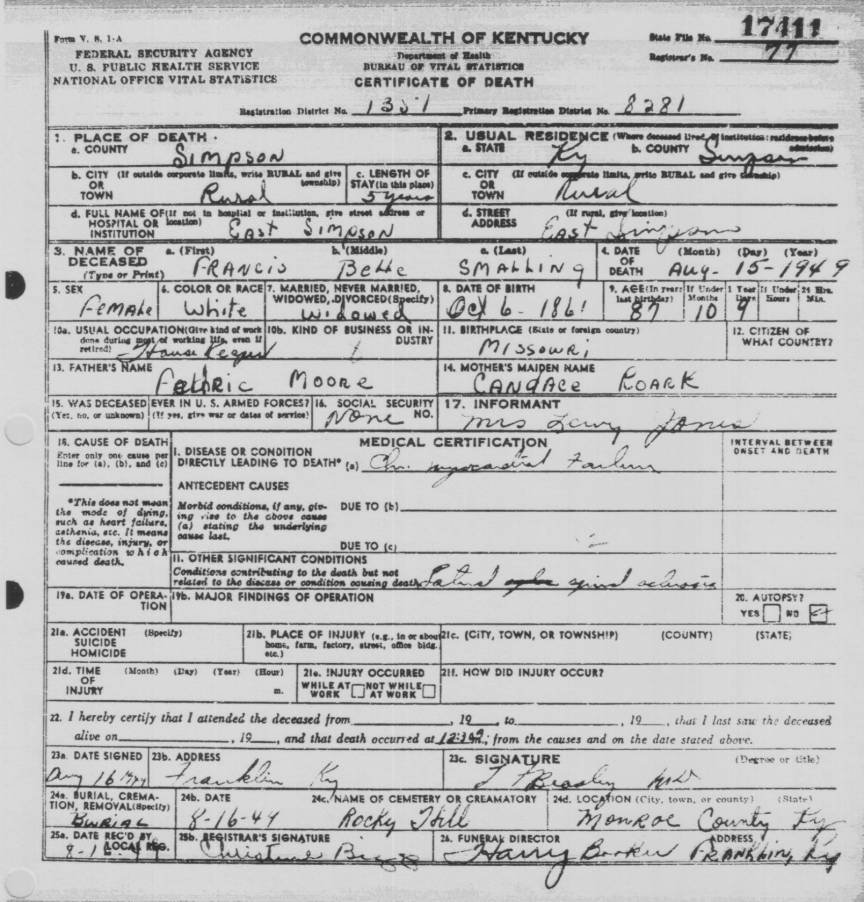 Form V. S. 1-A
COMMONWEALTH OF KENTUCKY
State File No. 17411
FEDERAL SECURITY AGENCY
Department of Health
Registrar's No. 77
U. S. PUBLIC HEALTH SERVICE
BUREAU OF VITAL STATISTICS
NATIONAL OFFICE VITAL STATISTICS
CERTIFICATE OF DEATH
Registration District No. 1351 Primary Registration District No. 8281
1. PLACE OF DEATH
a. COUNTY SIMPSON
2. USUAL RESIDENCE (Where deceased lived, if institution: residence before admission)
a. STATE Ky b. COUNTY Simpson
b. CITY (If outside corporate limits, write RURAL and give township)
OR
TOWN Rural
c. LENGTH OF
STAY (in this place)
5 years
c. CITY (If outside corporate limits, write RURAL and give township)
OR
TOWN Rural
d. FULL NAME OF (If not in hospital or institution, give street address or location)
HOSPITAL OR
INSTITUTION EAST SIMPSON
d. STREET (If rural, give location)
ADDRESS EAST Simpson
3. NAME OF DECEASED
(Type or Print)
a. (First) FRANCIS
b. (Middle) BELLE
c. (Last) SMALLING
4. DATE OF DEATH (Month) (Day) (Year)
Aug- 15-1949
5. SEX
FEMALE
6. COLOR OR RACE
White
7. MARRIED, NEVER MARRIED, WIDOWED, DIVORCED (Specify)
WIDOWED
8. DATE OF BIRTH
Oct 6- 1861
9. AGE (In years last birthday) 87
If Under 1 Year Months 10 Days 9
If Under 24 Hrs. Hours Min.
10a. USUAL OCCUPATION (Give kind of work done during most of working life, even if retired)
House Keeper
10b. KIND OF BUSINESS OR INDUSTRY
11. BIRTHPLACE (State or foreign country)
MISSOURI
12. CITIZEN OF WHAT COUNTRY?
13. FATHER'S NAME
MOORE
14. MOTHER'S MAIDEN NAME
CANDACE ROARK
15. WAS DECEASED EVER IN U. S. ARMED FORCES?
(Yes, no, or unknown) (If yes, give war or dates of service)
16. SOCIAL SECURITY NO.
NONE
17. INFORMANT
Mrs Jones
18. CAUSE OF DEATH
Enter only one cause per line for (a), (b), and (c)
MEDICAL CERTIFICATION
INTERVAL BETWEEN ONSET AND DEATH
I. DISEASE OR CONDITION
DIRECTLY LEADING TO DEATH* (a) Chr. myocardial Failure
*This does not mean the mode of dying, such as heart failure, asthenia, etc. It means the disease, injury, or complication which caused death.
ANTECEDENT CAUSES
Morbid conditions, if any, giving rise to the above cause (a) stating the underlying cause last.
DUE TO (b)
DUE TO (c)
II. OTHER SIGNIFICANT CONDITIONS
Conditions contributing to the death but not related to the disease or condition causing death. Lateral spinal sclerosis
19a. DATE OF OPERATION
19b. MAJOR FINDINGS OF OPERATION
20. AUTOPSY?
YES NO
21a. ACCIDENT (Specify)
SUICIDE
HOMICIDE
21b. PLACE OF INJURY (e.g., in or about home, farm, factory, street, office bldg. etc.)
21c. (CITY, TOWN, OR TOWNSHIP) (COUNTY) (STATE)
21d. TIME (Month) (Day) (Year) (Hour)
OF
INJURY m.
21e. INJURY OCCURRED
WHILE AT WORK NOT WHILE AT WORK
21f. HOW DID INJURY OCCUR?
22. I hereby certify that I attended the deceased from , 19 , to , 19 , that I last saw the deceased
alive on , 19 , and that death occurred at m., from the causes and on the date stated above.
23a. DATE SIGNED
Aug 16
23b. ADDRESS
Franklin Ky
23c. SIGNATURE (Degree or title)
Beasley M.D.
24a. BURIAL, CREMATION, REMOVAL (Specify)
BURIAL
24b. DATE
8-16-49
24c. NAME OF CEMETERY OR CREAMATORY
Rocky Hill
24d. LOCATION (City, town, or county) (State)
Monroe County Ky
25a. DATE REC'D BY LOCAL REG.
8-16-49
25b. REGISTRAR'S SIGNATURE
Christine
26. FUNERAL DIRECTOR ADDRESS
Harry Booker FRANKLIN, Ky